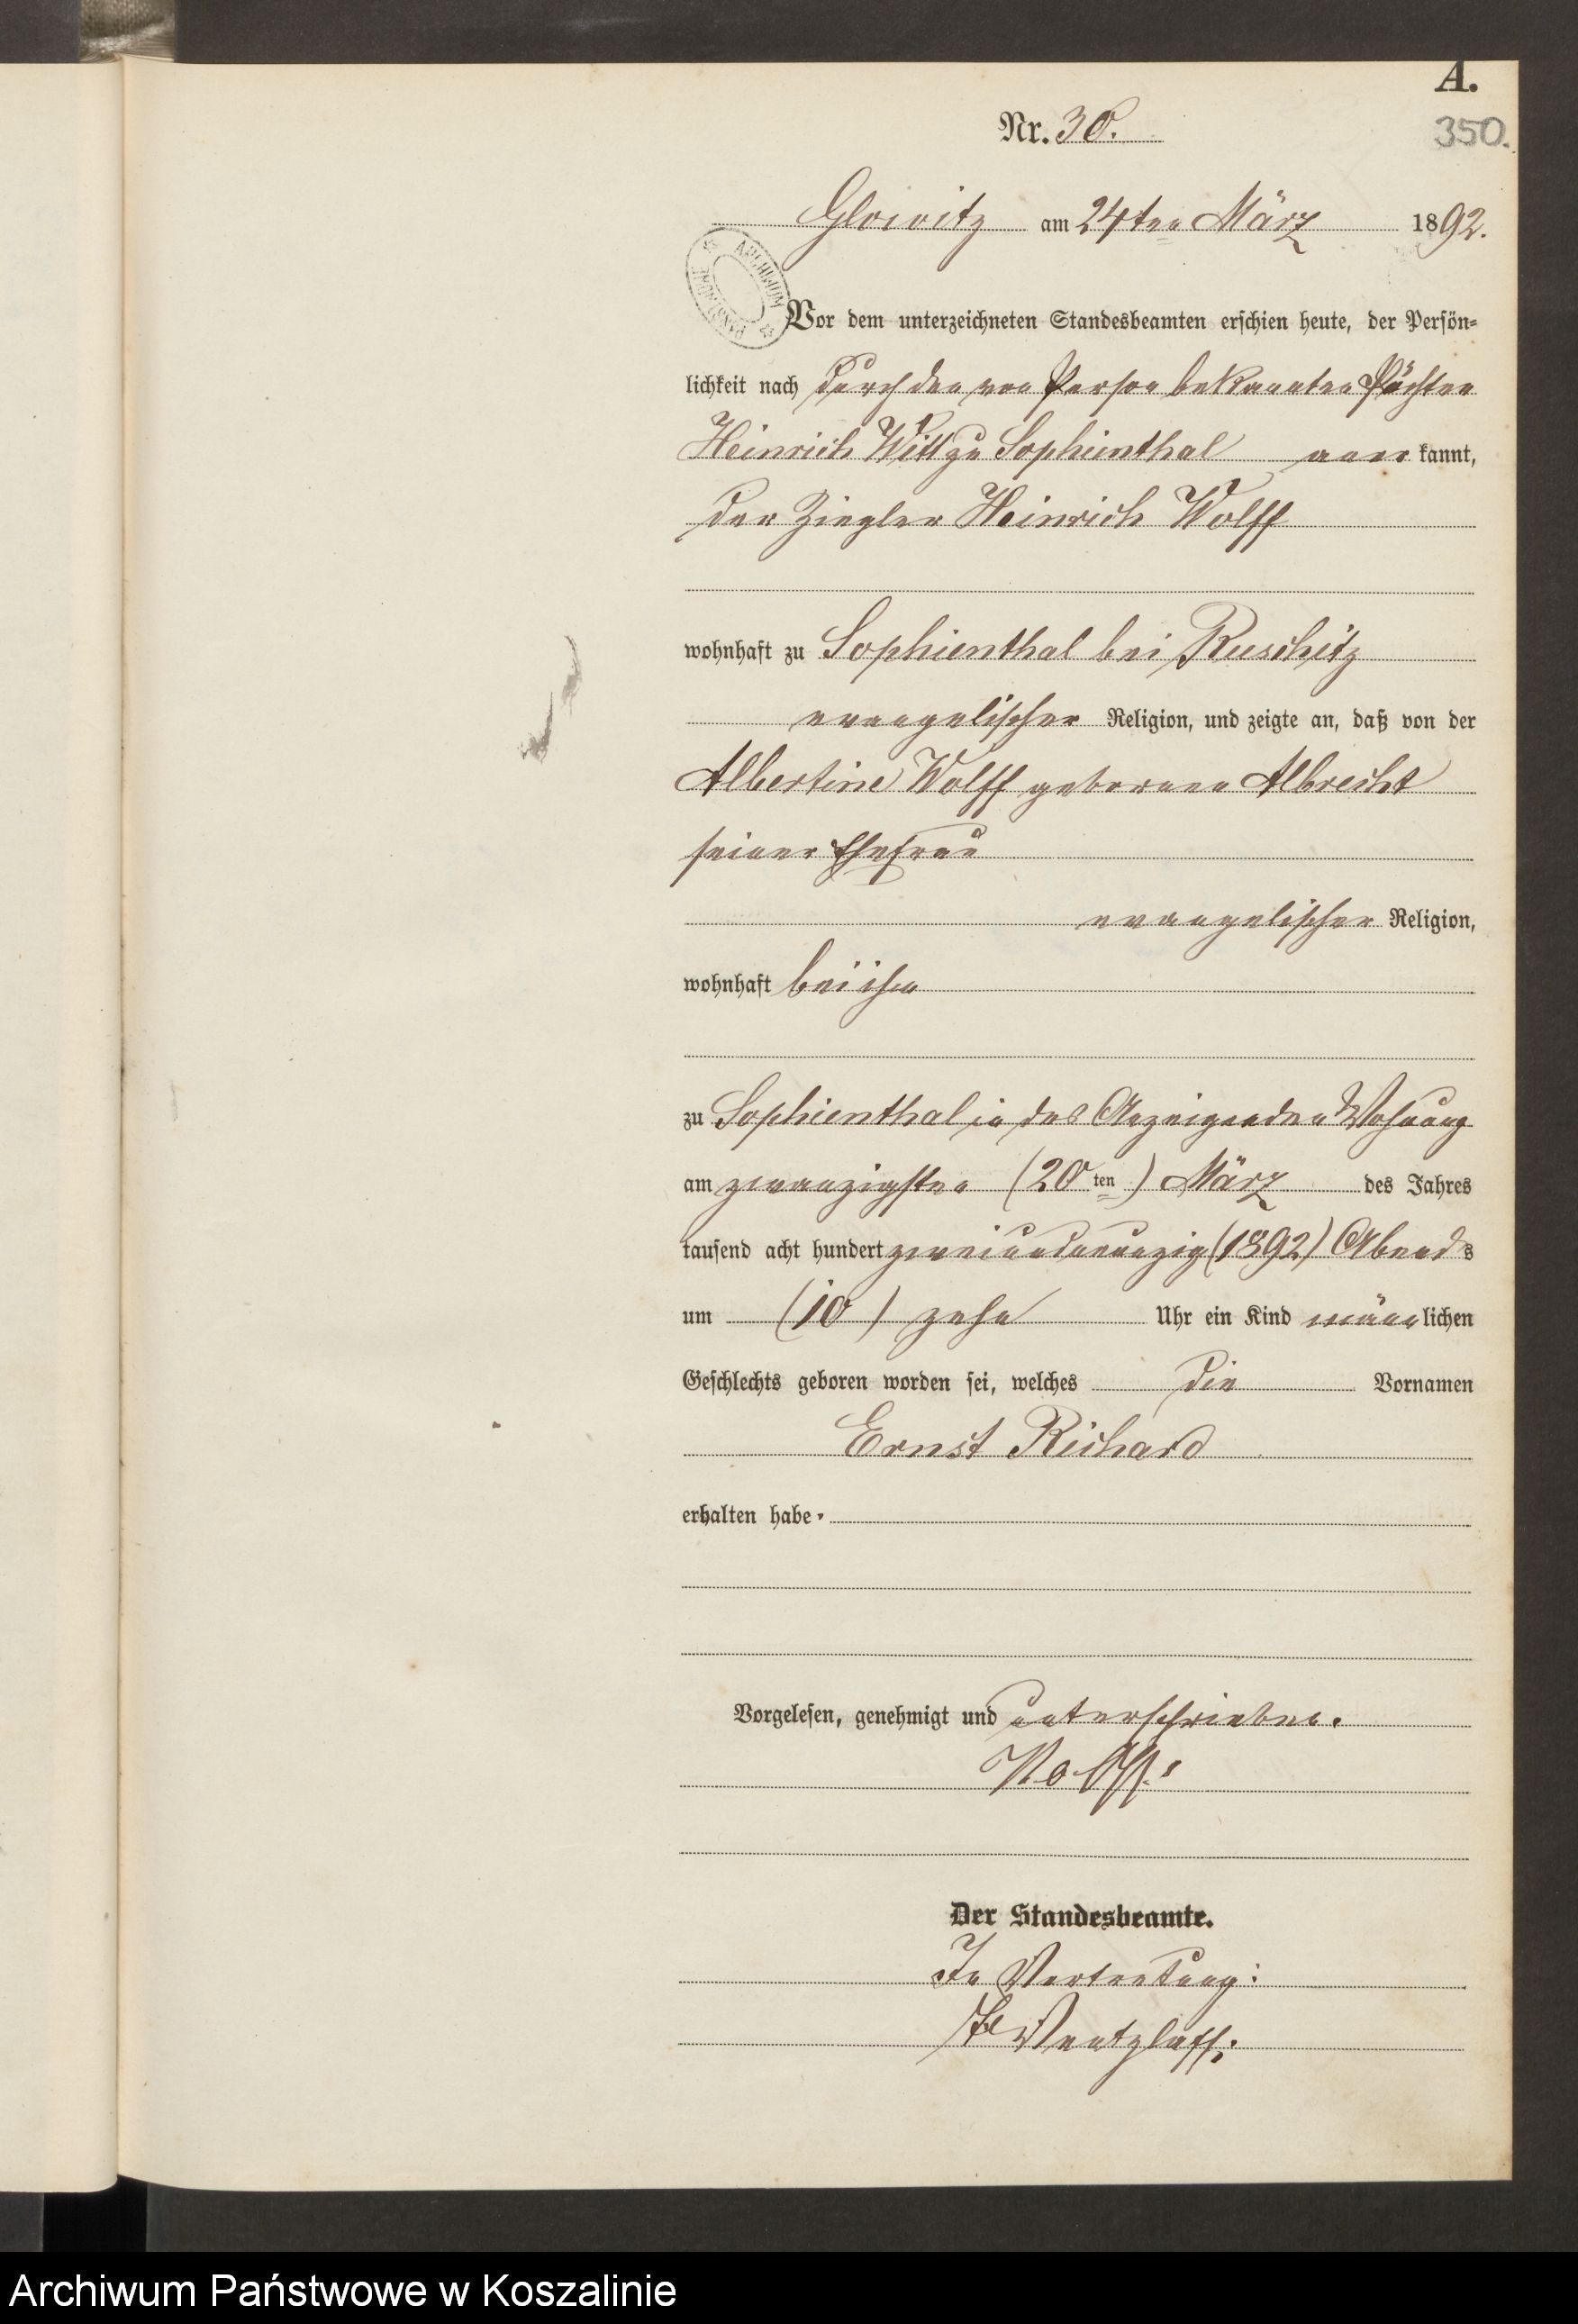 A.
Nr. 30.
350.
Glowitz am 24ten März 1892.
ARCHIWUM PAŃSTWOWE
Vor dem unterzeichneten Standesbeamten erschien heute, der Persön-
lichkeit nach durch den von Person bekannten Pächter
Heinrich Witt zu Sophienthal aner kannt,
der Ziegler Heinrich Wolff
wohnhaft zu Sophienthal bei Ruschitz
evangelischer Religion, und zeigte an, daß von der
Albertine Wolff geborenen Albrecht
seiner Ehefrau
evangelischer Religion,
wohnhaft bei ihm
zu Sophienthal in des Anzeigenden Wohnung
am zwanzigsten (20ten) März des Jahres
tausend acht hundert zweiundneunzig (1892) Abends
um (10) zehn Uhr ein Kind männlichen
Geschlechts geboren worden sei, welches die Vornamen
Ernst Richard
erhalten habe.
Vorgelesen, genehmigt und unterschrieben.
Wolff.
Der Standesbeamte.
In Vertretung:
Wentzlaff.
Archiwum Państwowe w Koszalinie